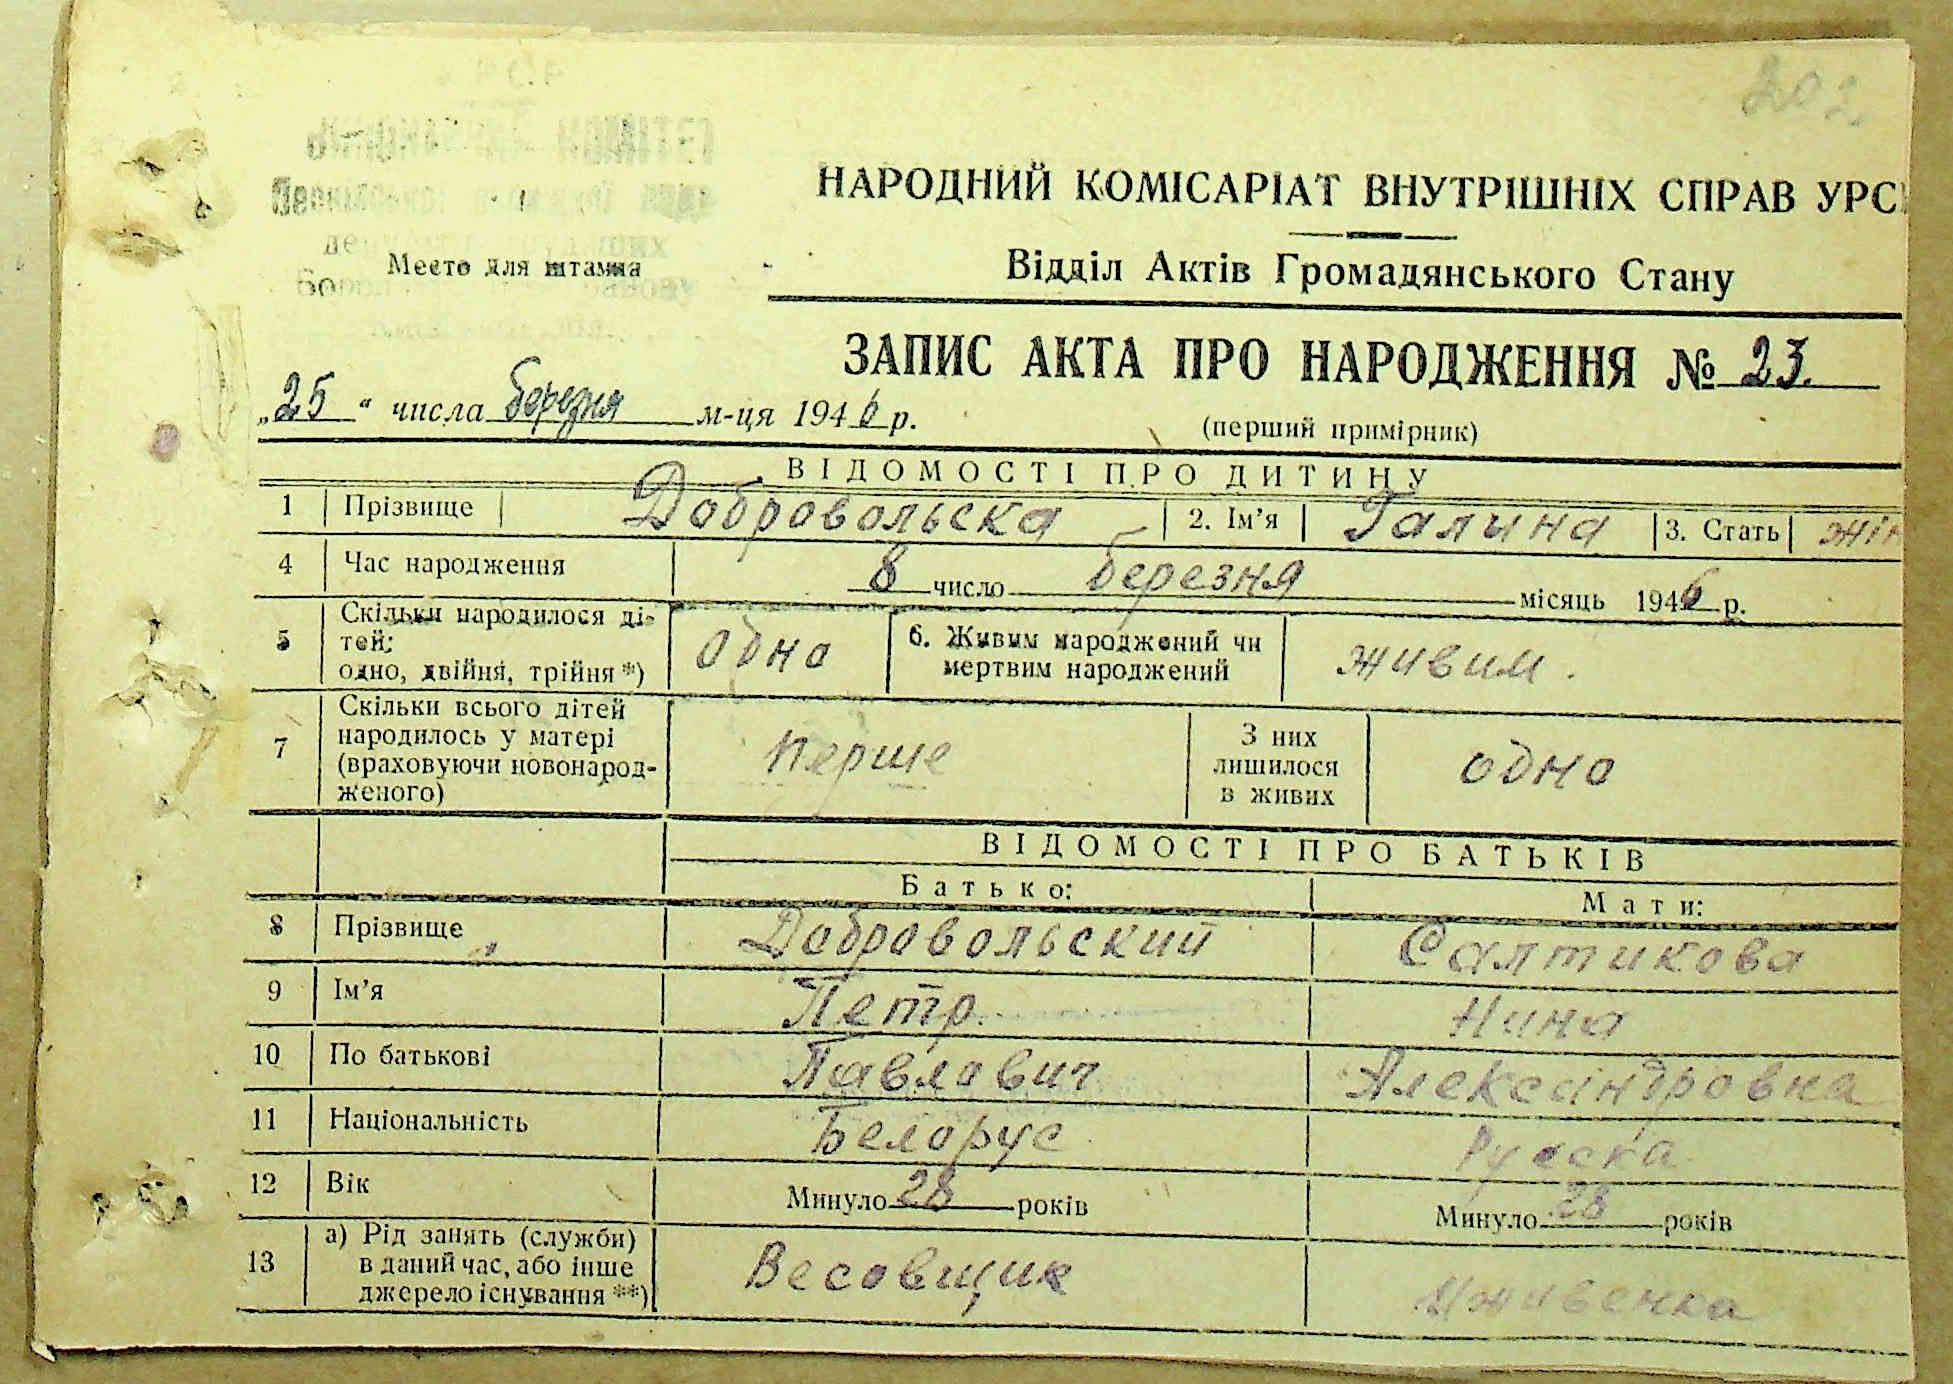 202
НАРОДНИЙ КОМІСАРІАТ ВНУТРІШНІХ СПРАВ УРС
Место для штампа
Відділ Актів Громадянського Стану
ЗАПИС АКТА ПРО НАРОДЖЕННЯ № 23.
„25“ числа березня м-ця 1946 р.
(перший примірник)
ВІДОМОСТІ ПРО ДИТИНУ
1 Прізвище Добровольска 2. Ім’я Галина 3. Стать жін
4 Час народження 8 число березня місяць 1946 р.
5 Скільки народилося ді-
тей:
одно, двійня, трійня *) одно
6. Живим народжений чи
мертвим народжений живим.
7 Скільки всього дітей
народилось у матері
(враховуючи новонарод-
женого) перше
З них
лишилося
в живих одно
ВІДОМОСТІ ПРО БАТЬКІВ
Батько: Мати:
8 Прізвище Добровольский Салтикова
9 Ім’я Петр Нина
10 По батькові Павлович Александровна
11 Національність Белорус Русска
12 Вік Минуло 28 років Минуло 28 років
13 а) Рід занять (служби)
в даний час, або інше
джерело існування **) Весовщик Иживенка